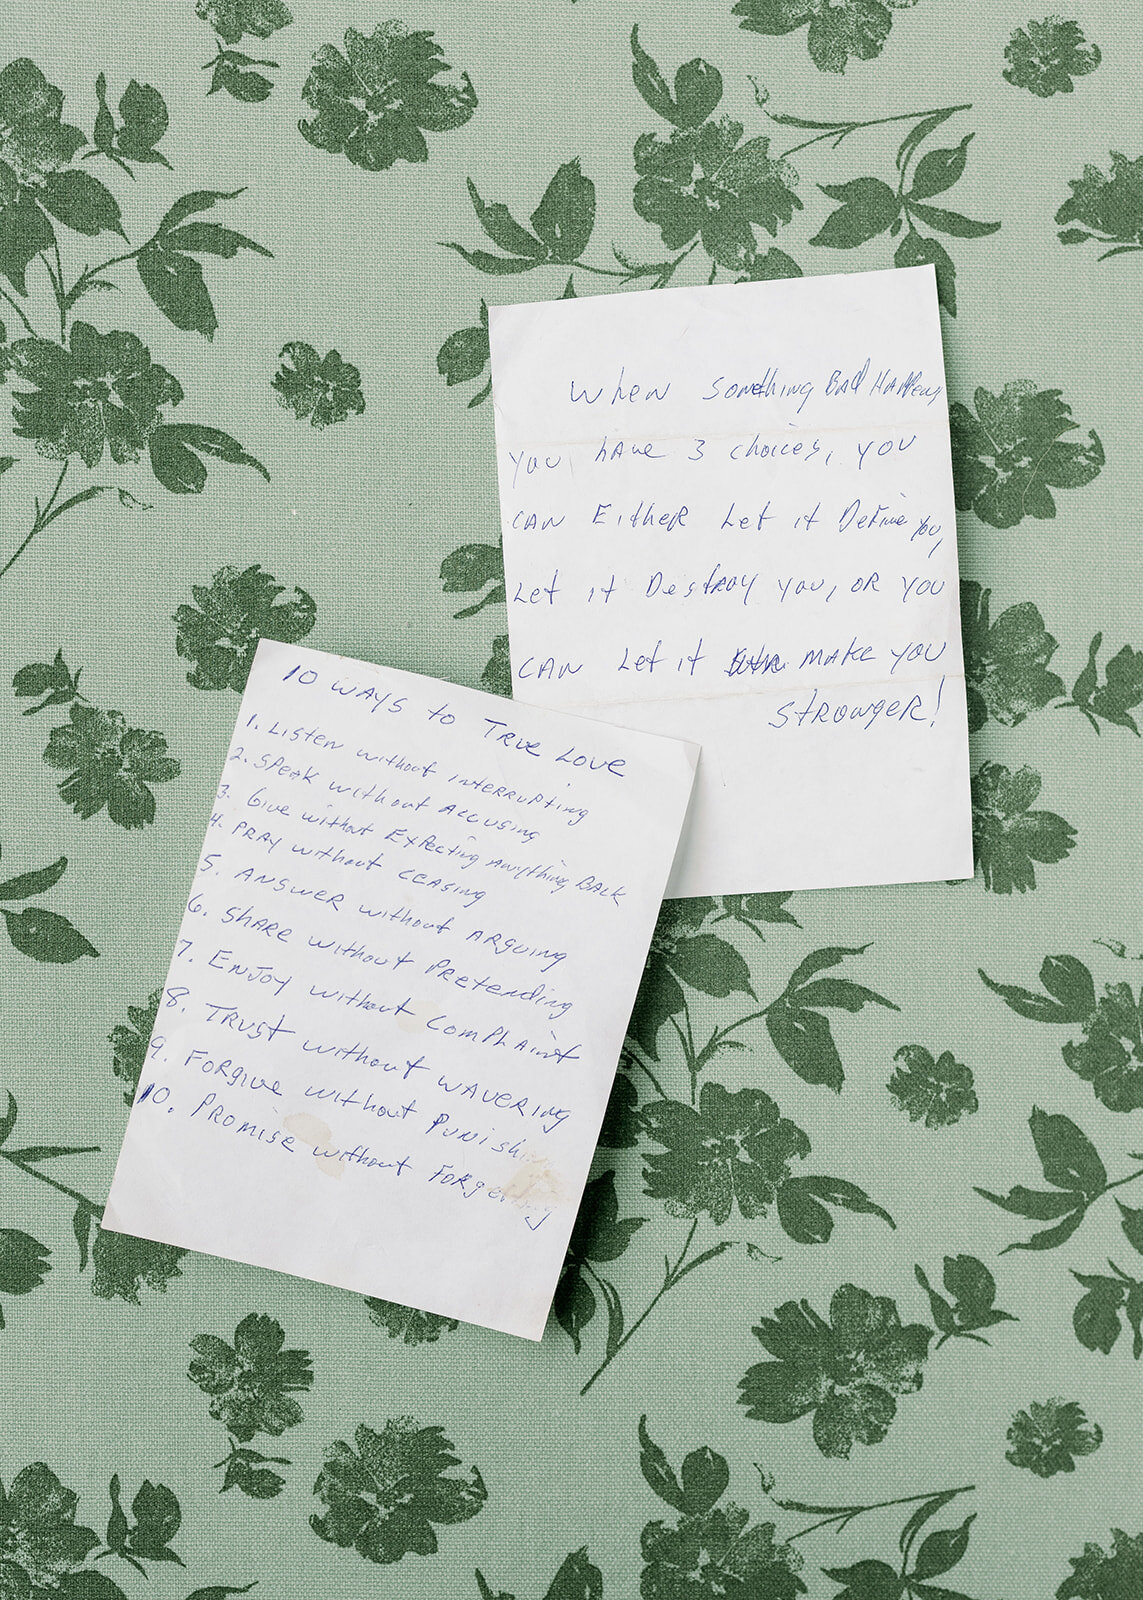 When Something Bad Happens
you have 3 choices, you
CAN EitheR Let it Define you,
Let it Destroy you, OR you
CAN Let it MAKE YOU
StRONgeR!
10 WAYS to TRUE LOVE
1. Listen without interRupting
2. Speak without Accusing
3. Give without Expecting Anything BACK
4. PRAY without CEASing
5. ANSWER without ARguing
6. ShARE without PRetending
7. ENJOY without ComPLAint
8. TRUSt without WAVERing
9. FORgive without Punishing
10. PROMISE without FORgetting